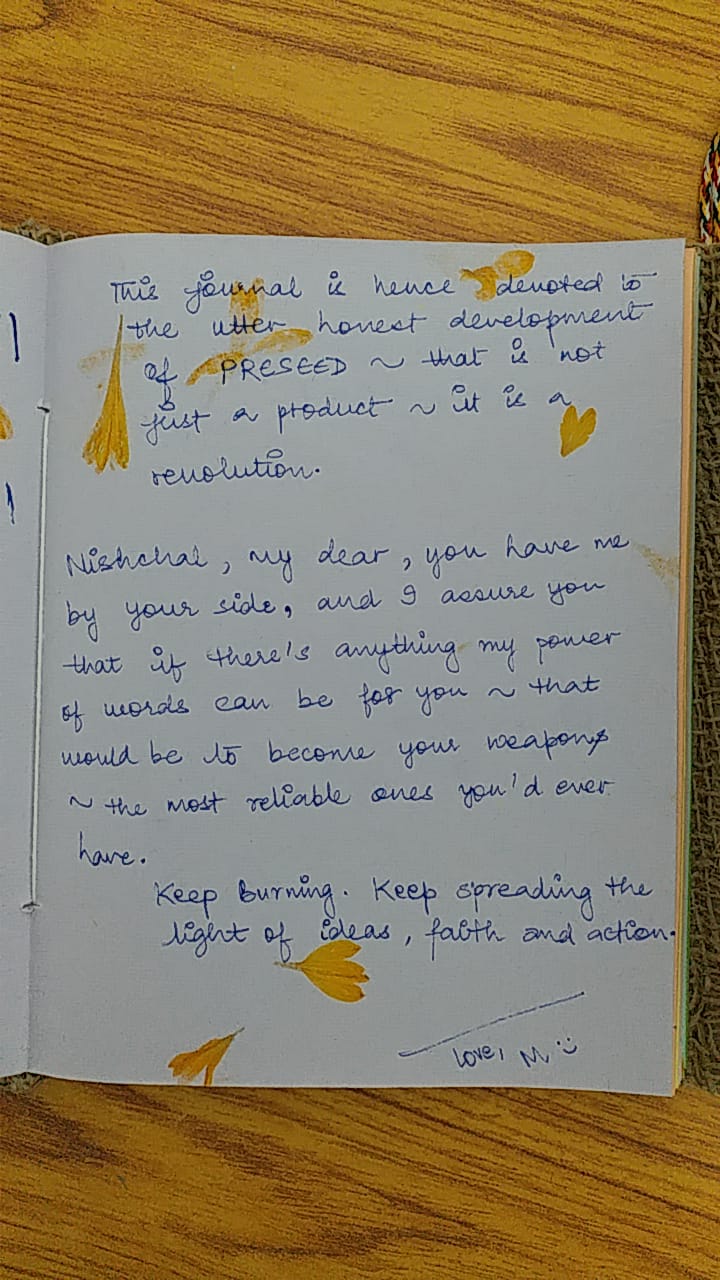 This journal is hence devoted to
the utter honest development
of PRESEED ~ that is not
just a product ~ it is a
revolution.
Nishchal, my dear, you have me
by your side, and I assure you
that if there's anything my power
of words can be for you ~ that
would be to become your weapons
~ the most reliable ones you'd ever
have.
Keep Burning. Keep spreading the
light of ideas, faith and action.
Love, M :)